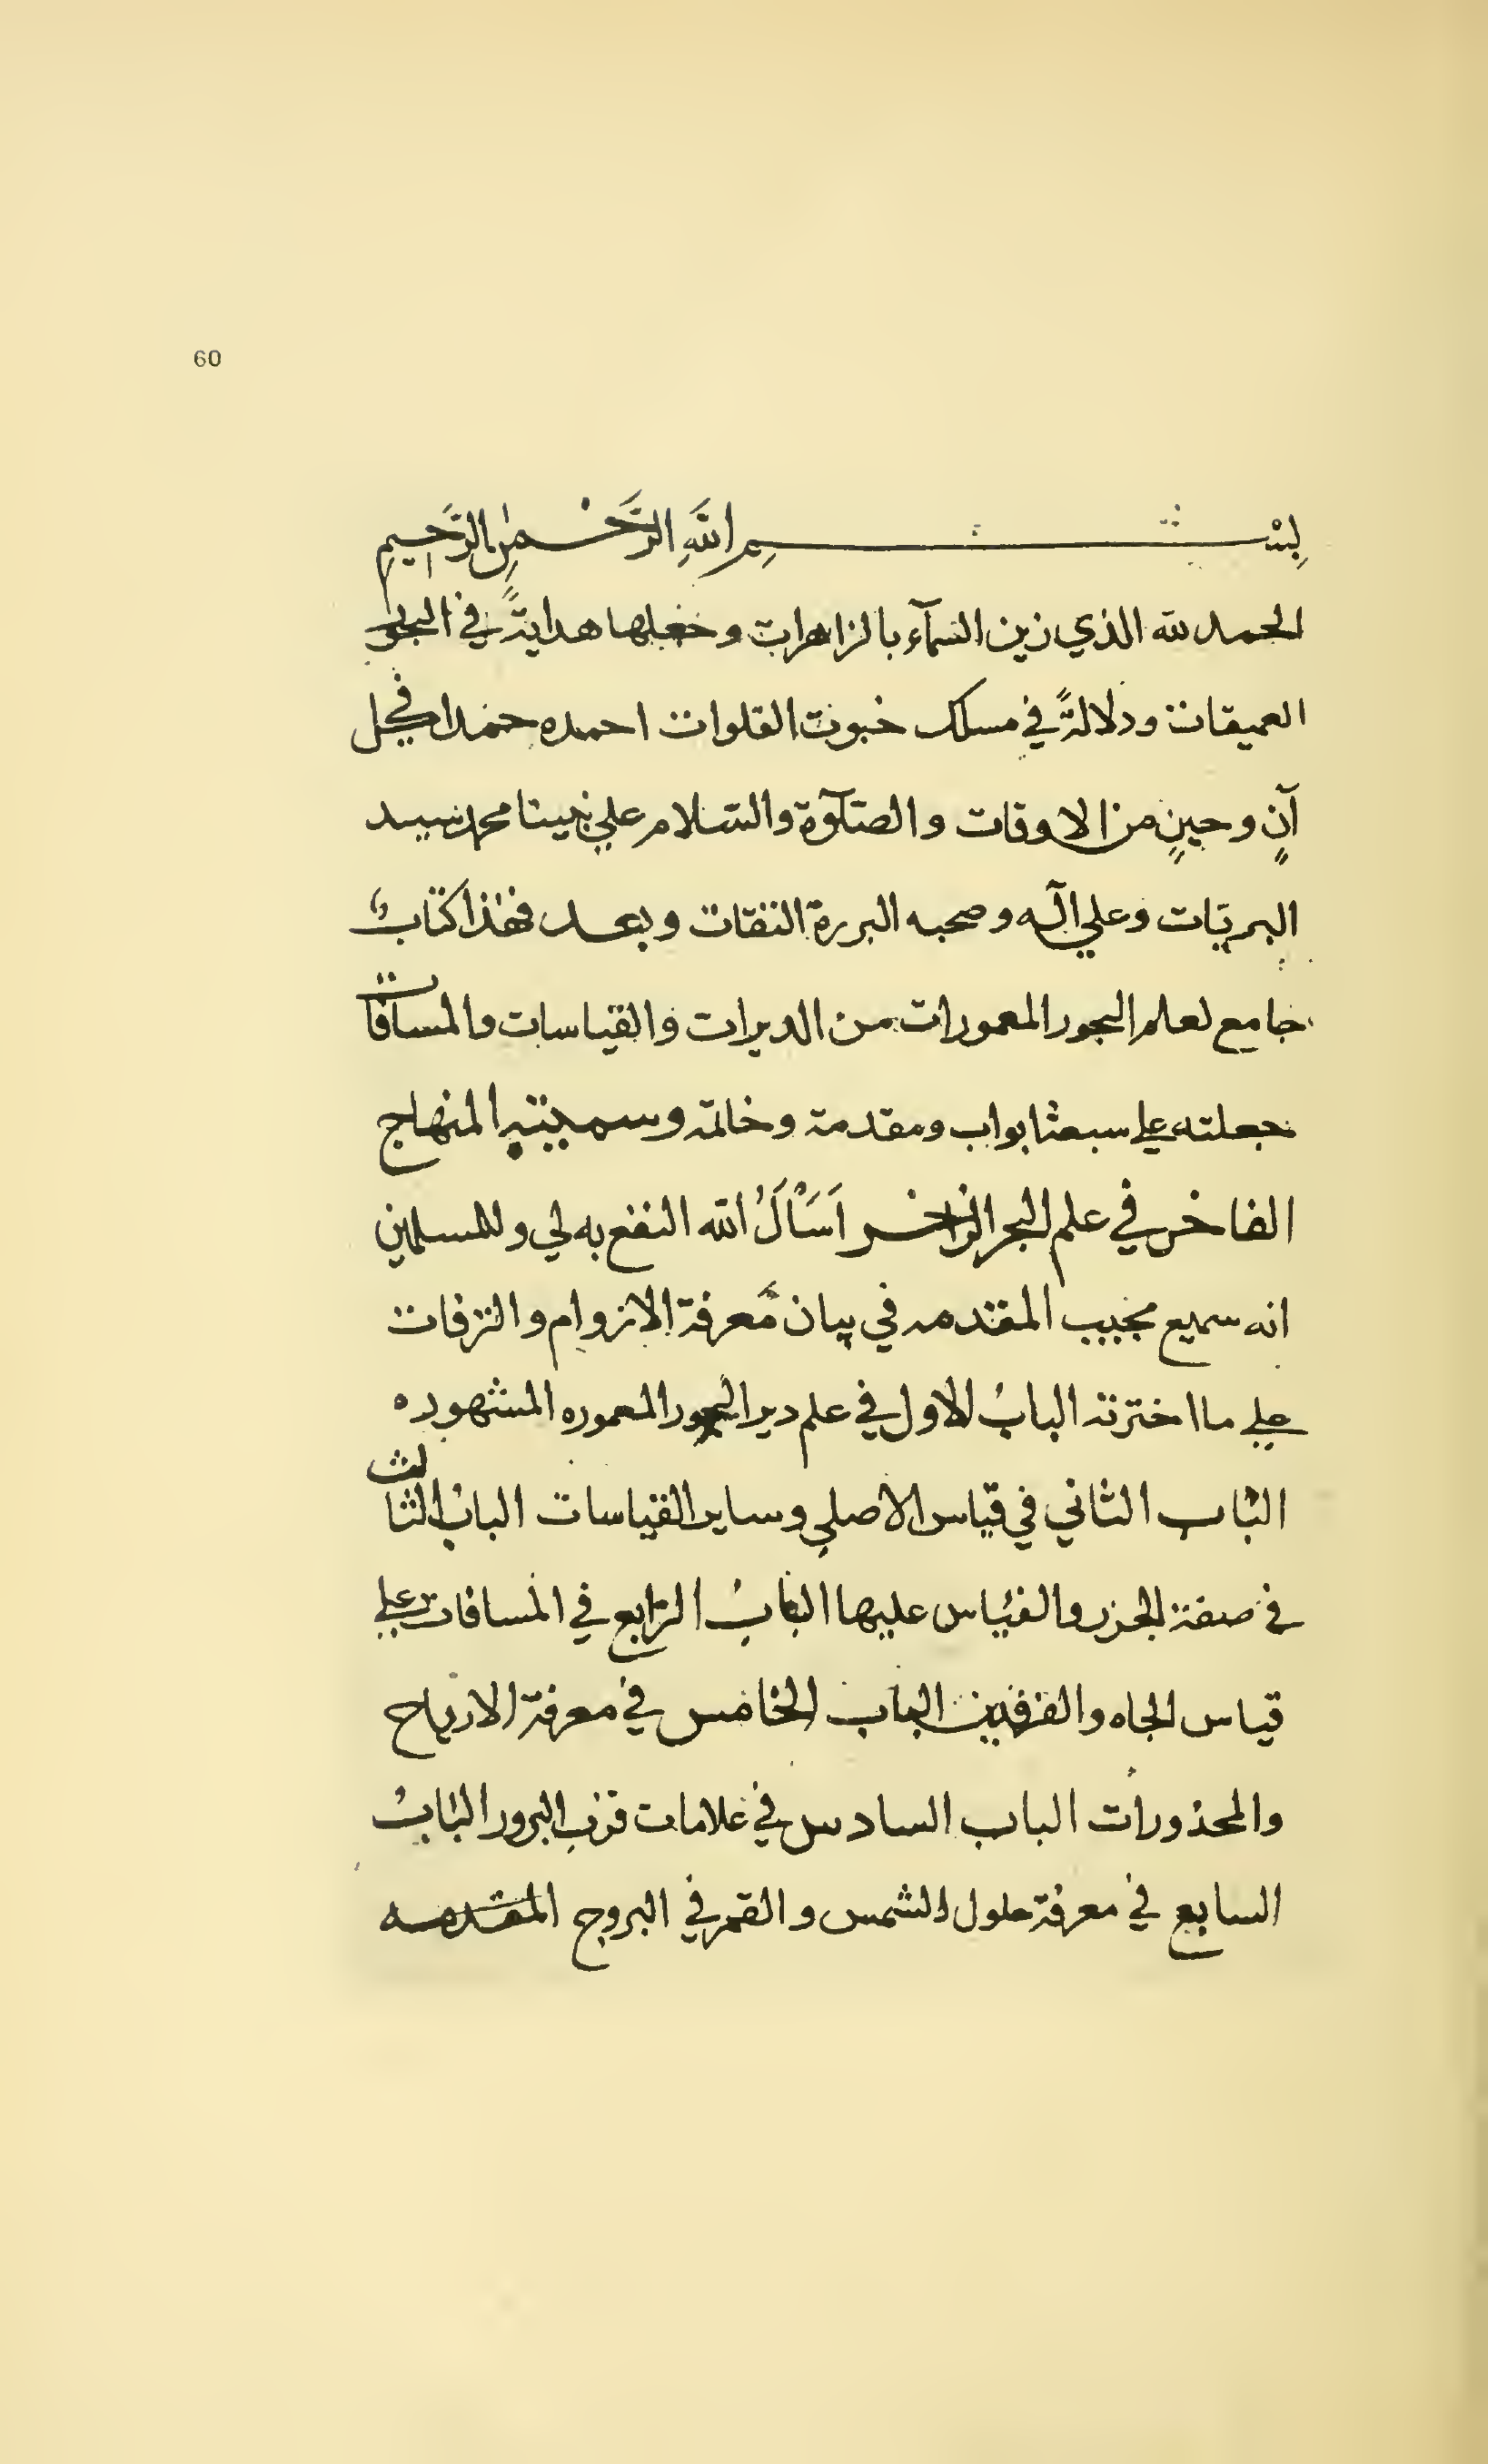 60
بِسْــــمِ اللَّهِ الرَّحْمٰنِ الرَّحِيمِ
الحمد لله الذي زين السمآء بالزاهرات وجعلها هدايةً في البحور
العميقات ودلالةً في مسلك خبوت الفلوات احمده حمدا في كل
آنٍ وحينٍ من الاوقات والصّلوٰة والسّلام علي نبينا محمد سيد
البريّات وعلي آله وصحبه البررة الثقات وبعد فهٰذا كتابٌ
جامع لعلم البحور المعمورات من الديرات والقياسات والمسافات
جعلته علي سبعة ابواب ومقدمة وخاتمة وسميته المنهاج
الفاخر في علم البحر الزاخر اَسْأَلُ الله النفع به لي وللمسلمين
انه سميع مجيب المقدمه في بيان معرفة الازوام والترفات
علي ما اخترته البابُ الاول في علم دير البحور المعموره المشهوره
الباب الثاني في قياس الاصلي وساير القياسات البابُ الثالث
في صفة الجزر والقياس عليها البابُ الرّابع في المسافات علي
قياس الجاه والفرقدين الباب الخامس في معرفة الارياح
والمحذورات الباب السادس في علامات قرب البرور البابُ
السابع في معرفة حلول الشمس والقمر في البروج المقدمه